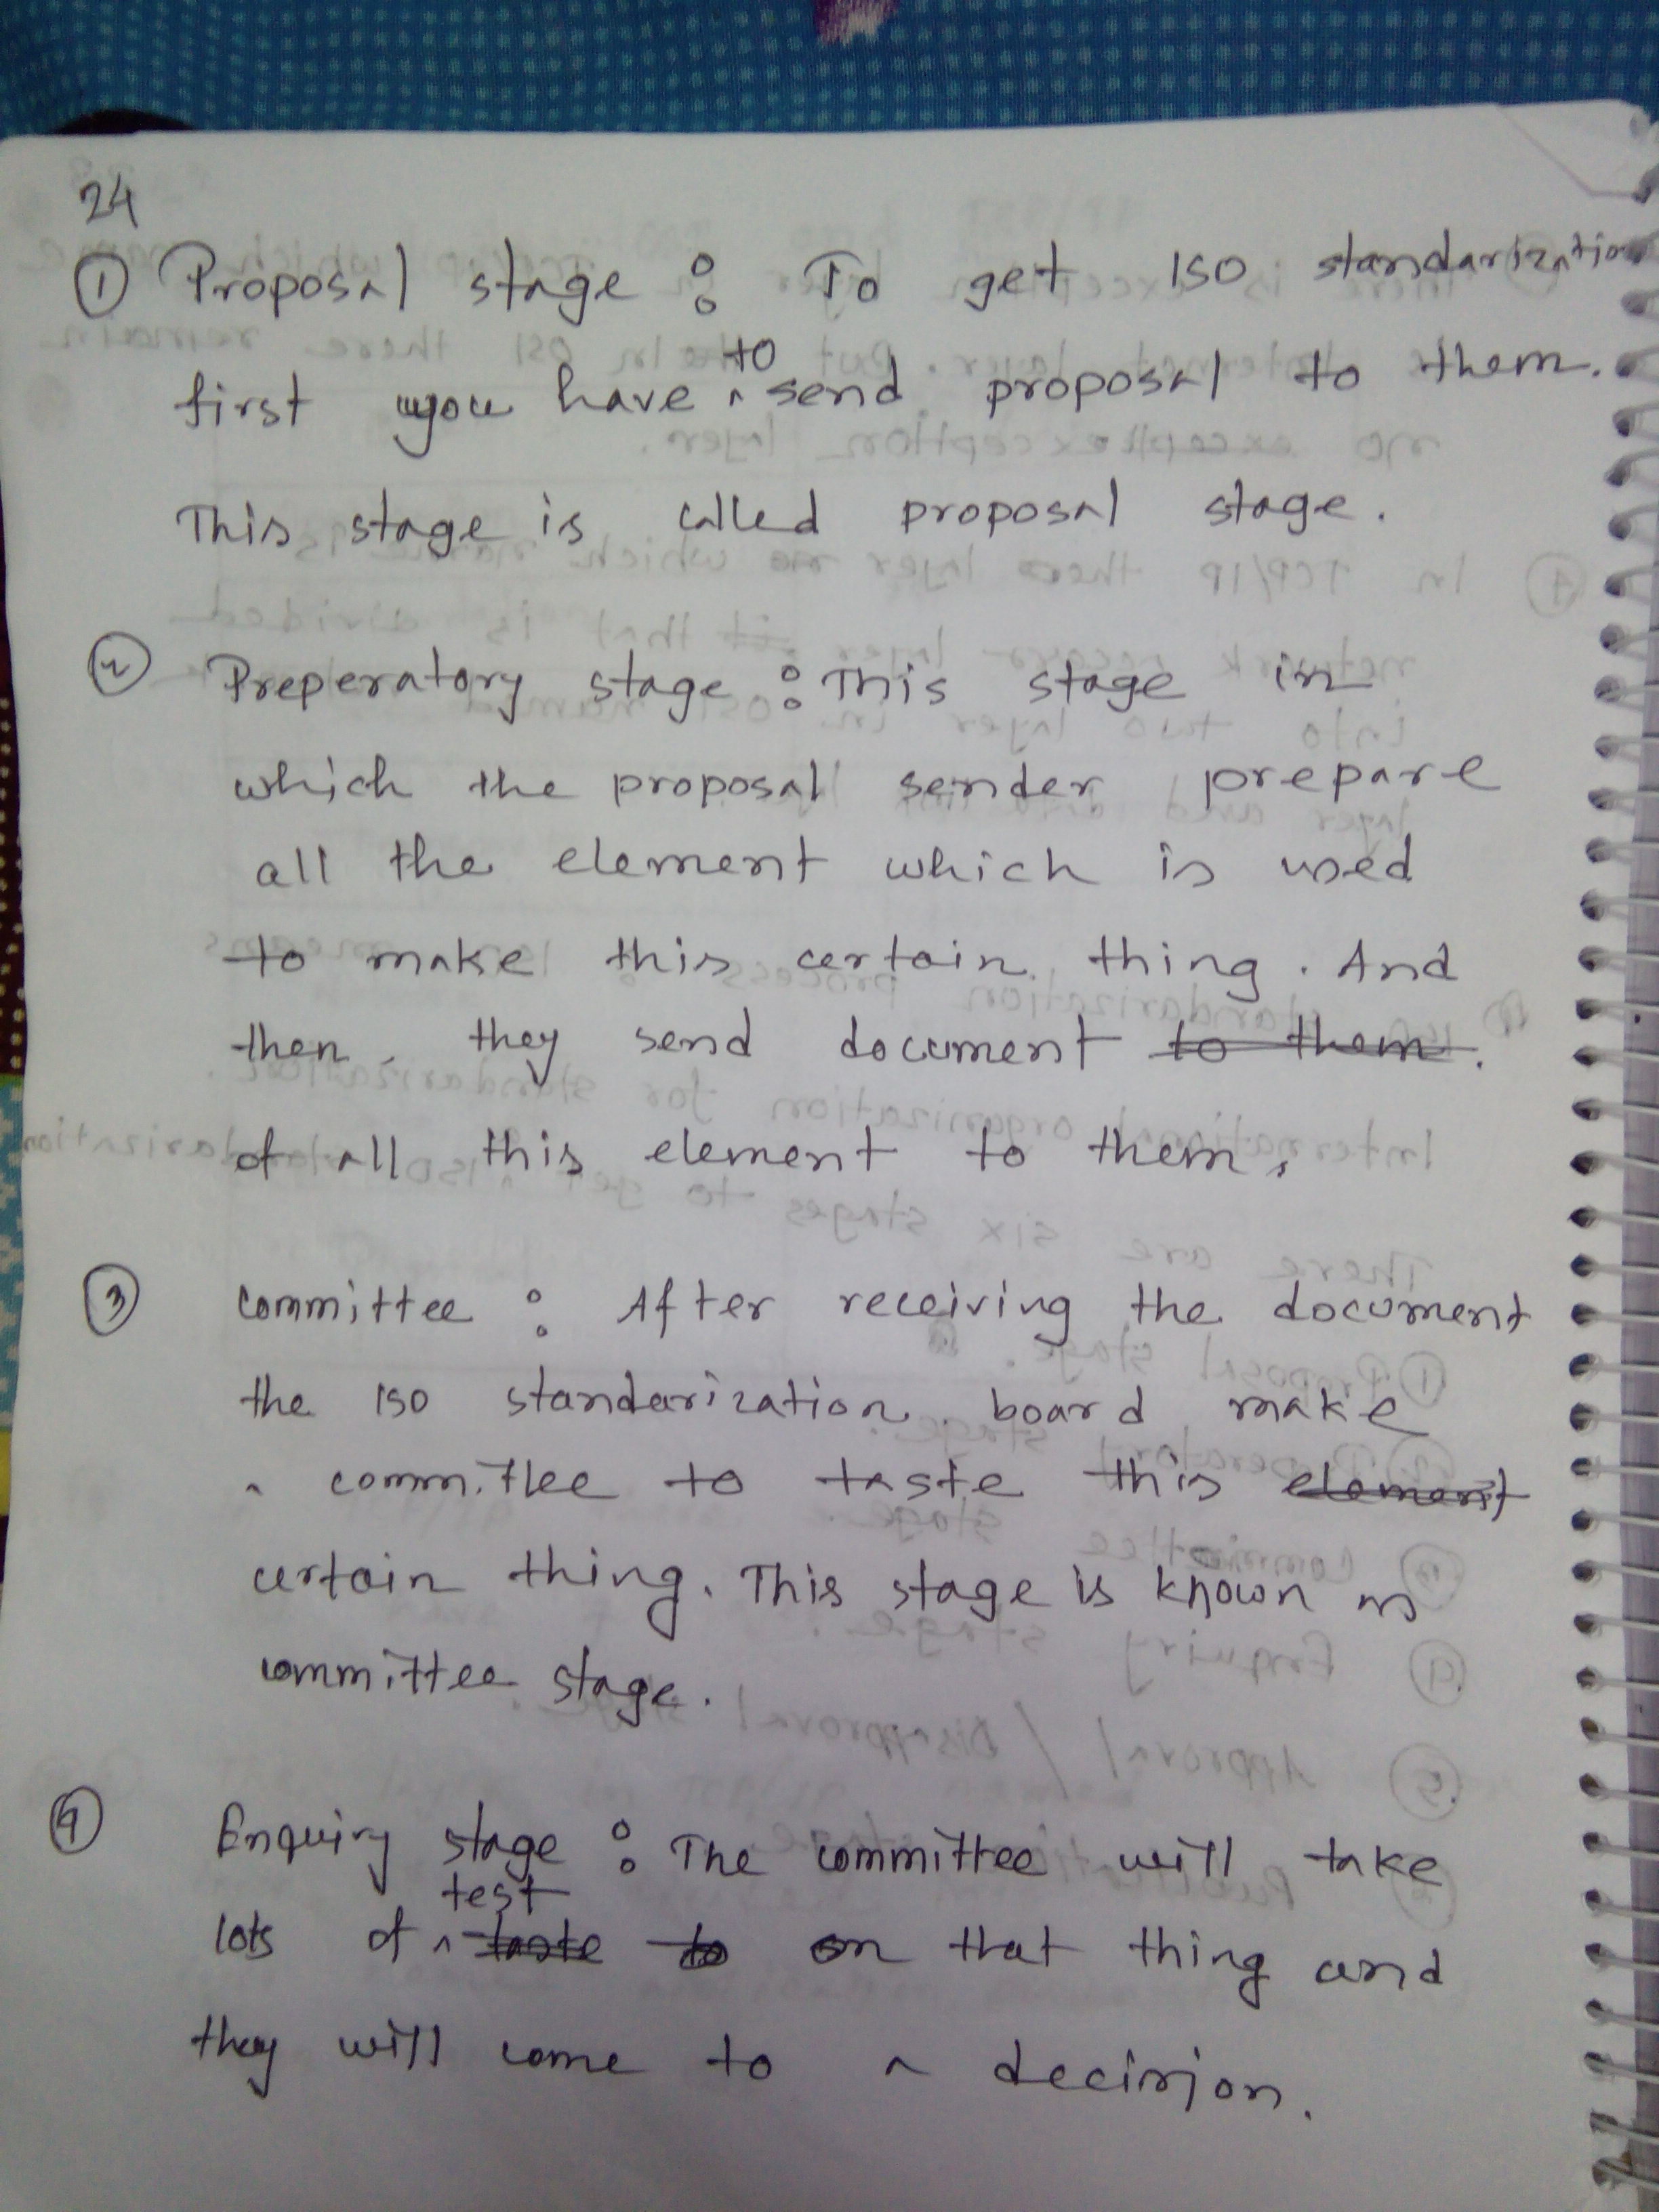 24
① Proposal stage : To get ISO standarization
first you have to send proposal to them.
This stage is called proposal stage.
② Preperatory stage : This stage in
which the proposal sender prepare
all the element which is used
to make this certain thing. And
then they send document to them.
of all this element to them.
③ committee : After receiving the document
the ISO standarization board make
a committee to taste this element
certain thing. This stage is known as
committee stage.
④ Enquiry stage : The committee will take
test
lots of taste to on that thing and
they will come to a decision.